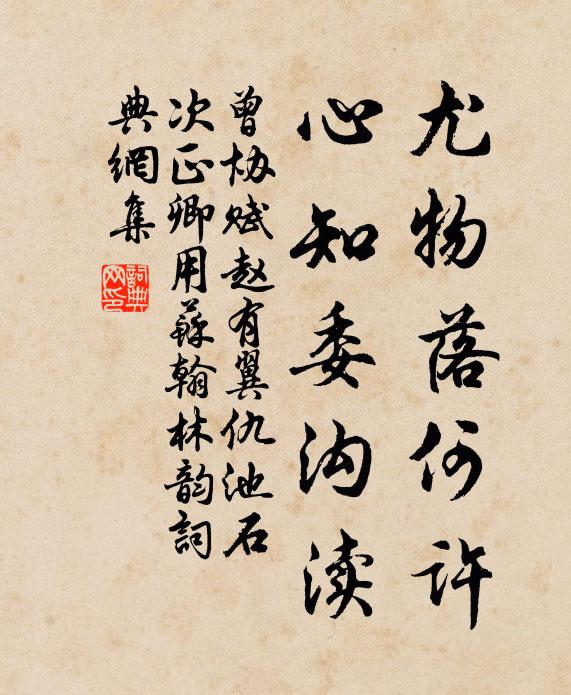 尤物落何许
心知委沟渎
曾协赋赵有翼仇池石
次正卿用蘇翰林韵詞
典網集
詞典网印